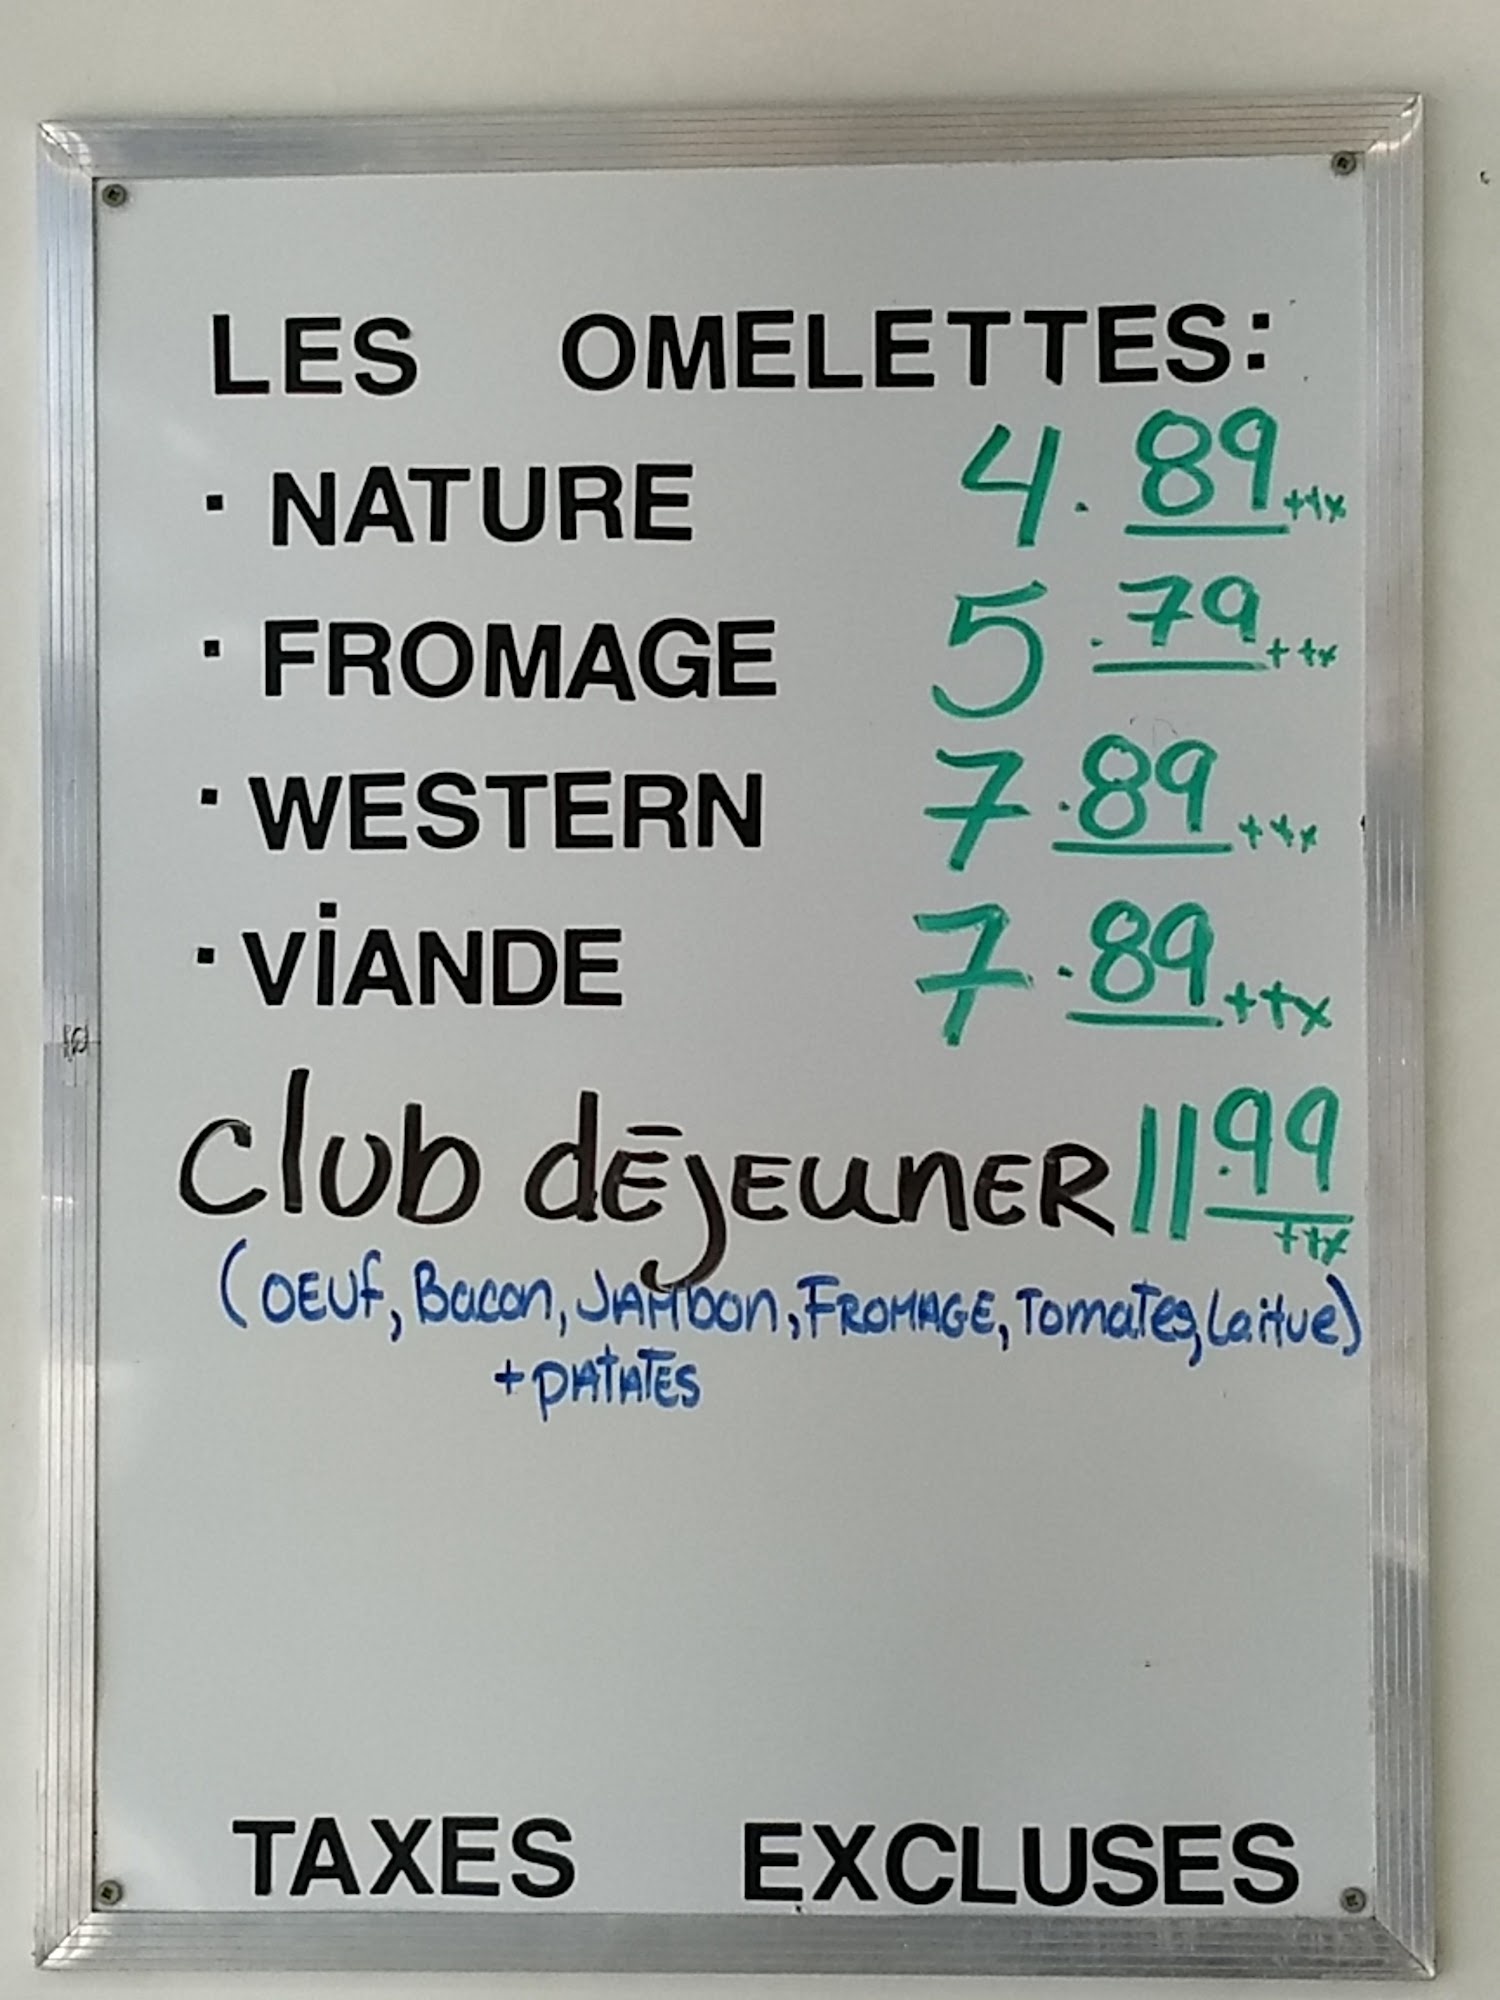 LES OMELETTES:
· NATURE 4.89 ++x
· FROMAGE 5.79 ++x
· WESTERN 7.89 +++x
· ViANDE 7.89 ++x
club déjeuner 11.99 ++x
(OEUf, Bacon, JAMbon, FROMAGE, Tomates, Laitue)
+ PATATES
TAXES EXCLUSES